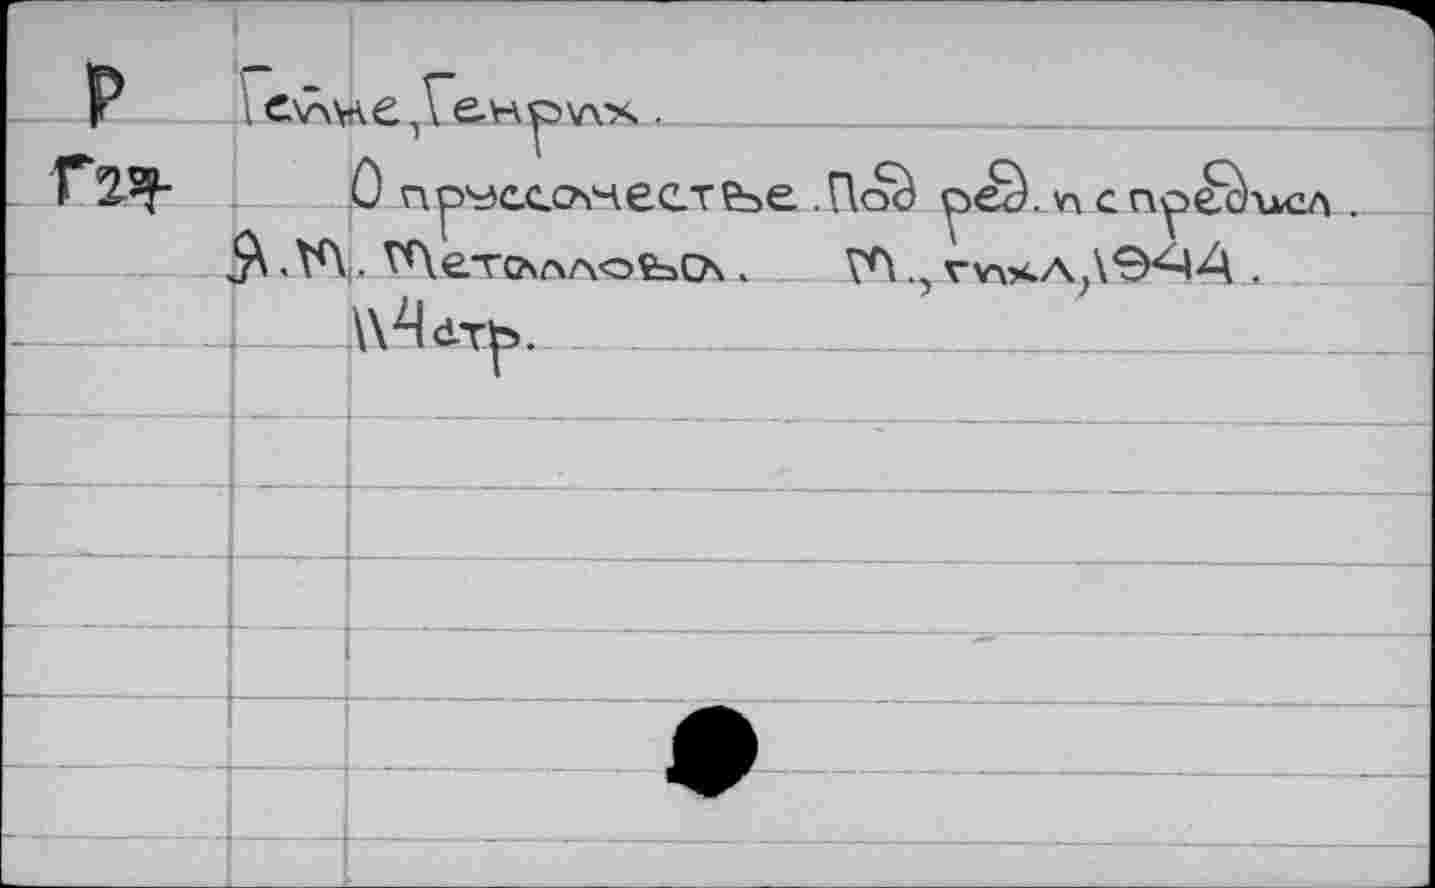 Р Гейне, Генрих.
Г27 О пруссачестве. Под ред. и с предисл.
Я.М. Металлова. М., гихл, 1944.
114 стр.